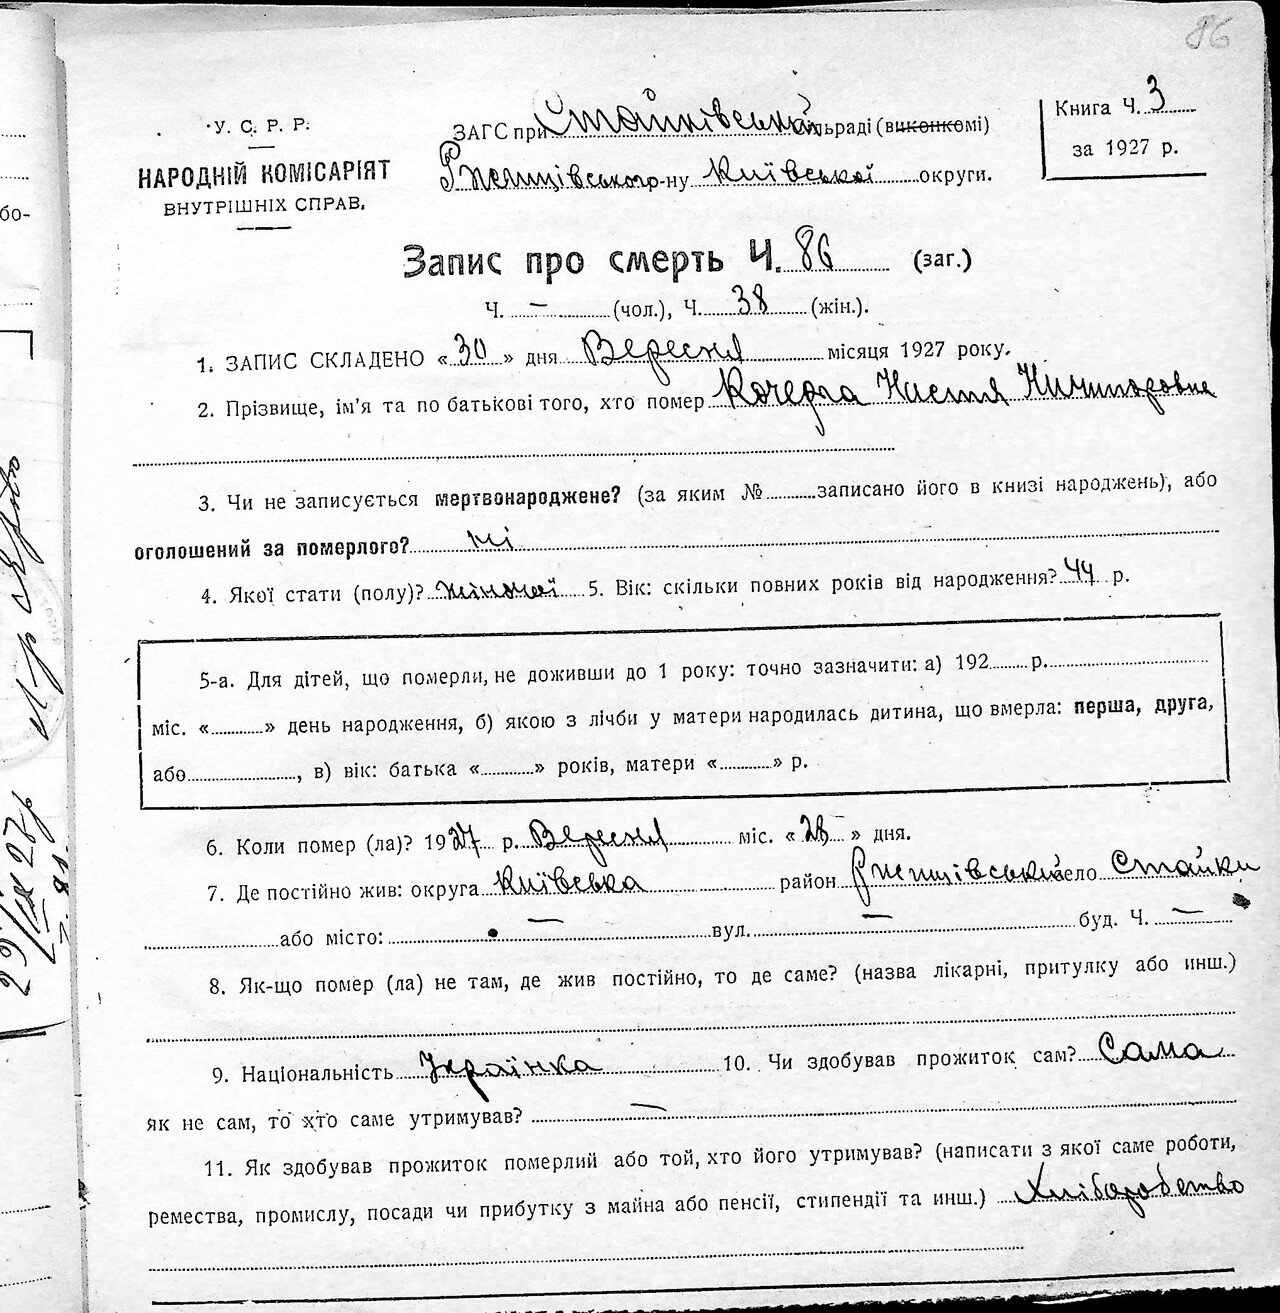 86
У. С. Р. Р.
НАРОДНІЙ КОМІСАРІЯТ
ВНУТРІШНІХ СПРАВ.
ЗАГС при Стайківській сільраді (виконкомі)
Ржищівського р-ну Київської округи.
Книга Ч. 3
за 1927 р.
Запис про смерть Ч. 86 (заг.)
Ч. — (чол.), Ч. 38 (жін.).
1. ЗАПИС СКЛАДЕНО «30» дня Вересня місяця 1927 року.
2. Прізвище, ім'я та по батькові того, хто помер Кочерга Настя Ничипоровна
3. Чи не записується мертвонароджене? (за яким № записано його в книзі народжень), або
оголошений за померлого? ні
4. Якої стати (полу)? жіночої 5. Вік: скільки повних років від народження? 44 р.
5-а. Для дітей, що померли, не доживши до 1 року: точно зазначити: а) 192 р.
міс. « » день народження, б) якою з лічби у матери народилась дитина, що вмерла: перша, друга,
або , в) вік: батька « » років, матери « » р.
6. Коли помер (ла)? 1927 р. Вересня міс. «28» дня.
7. Де постійно жив: округа Київська район Ржищівський село Стайки
або місто: — вул. — буд. Ч. —
8. Як-що помер (ла) не там, де жив постійно, то де саме? (назва лікарні, притулку або инш.)
9. Національність Українка 10. Чи здобував прожиток сам? Сама
як не сам, то хто саме утримував? —
11. Як здобував прожиток померлий або той, хто його утримував? (написати з якої саме роботи,
ремества, промислу, посади чи прибутку з майна або пенсії, стипендії та инш.) Хліборобство
бо-